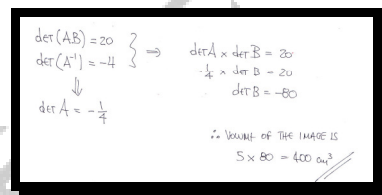 det(AB) = 20
det(A⁻¹) = -4
} ⇒
⇓
det A = -1/4
det A × det B = 20
-1/4 × det B = 20
det B = -80
∴ VOLUME OF THE IMAGE IS
5 × 80 = 400 cm³